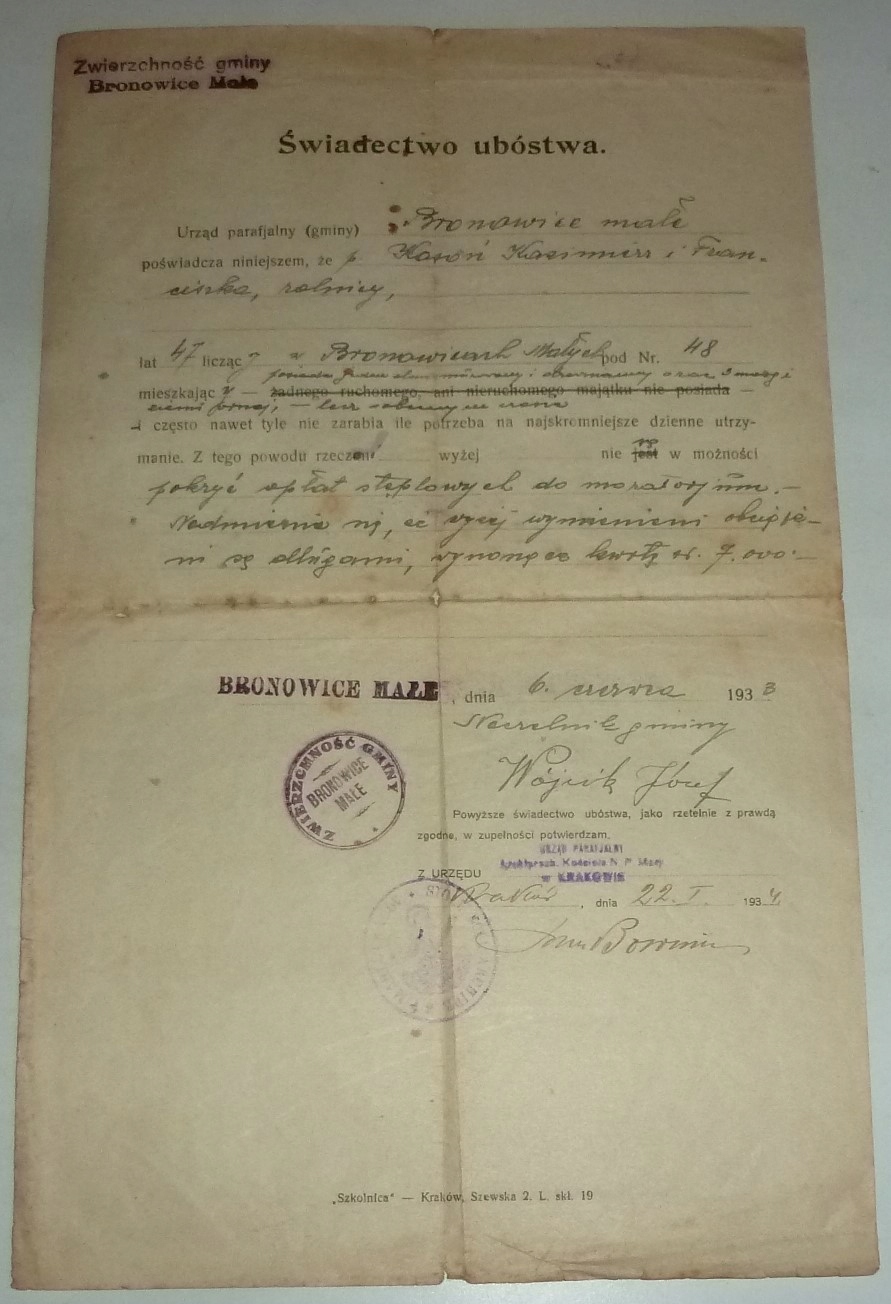 Zwierzchność gminy
Bronowice Małe
Świadectwo ubóstwa.
Urząd parafjalny (gminy) Bronowice małe
poświadcza niniejszem, że p. Kazimierz i Fran-
ciszka, rolnicy,
lat 47 licząc y w Bronowicach Małych pod Nr. 48
posiada jeden dom murowany i oraz morgi
mieszkając y — żadnego ruchomego, ani nieruchomego majątku nie posiada —
ziemi ornej, — lecz
i często nawet tyle nie zarabia ile potrzeba na najskromniejsze dzienne utrzy-
manie. Z tego powodu rzeczeni wyżej nie są jest w możności
pokryć opłat stęplowych do moratorjum. —
Nadmienia się, że wyżej wymienieni obciąże-
ni są długami, wynoszące kwotę zł. 7.000.—
BRONOWICE MAŁE, dnia 6. czerwca 193 3
Naczelnik gminy
Wójcik Józef
ZWIERZCHNOŚĆ GMINY
BRONOWICE
MAŁE
Powyższe świadectwo ubóstwa, jako rzetelnie z prawdą
zgodne, w zupełności potwierdzam.
URZĄD PARAFJALNY
Archiprezb. Kościoła N. P. Marji
w KRAKOWIE
Z URZĘDU
Kraków, dnia 22. I. 193 4.
„Szkolnica“ — Kraków, Szewska 2. L. skł. 19